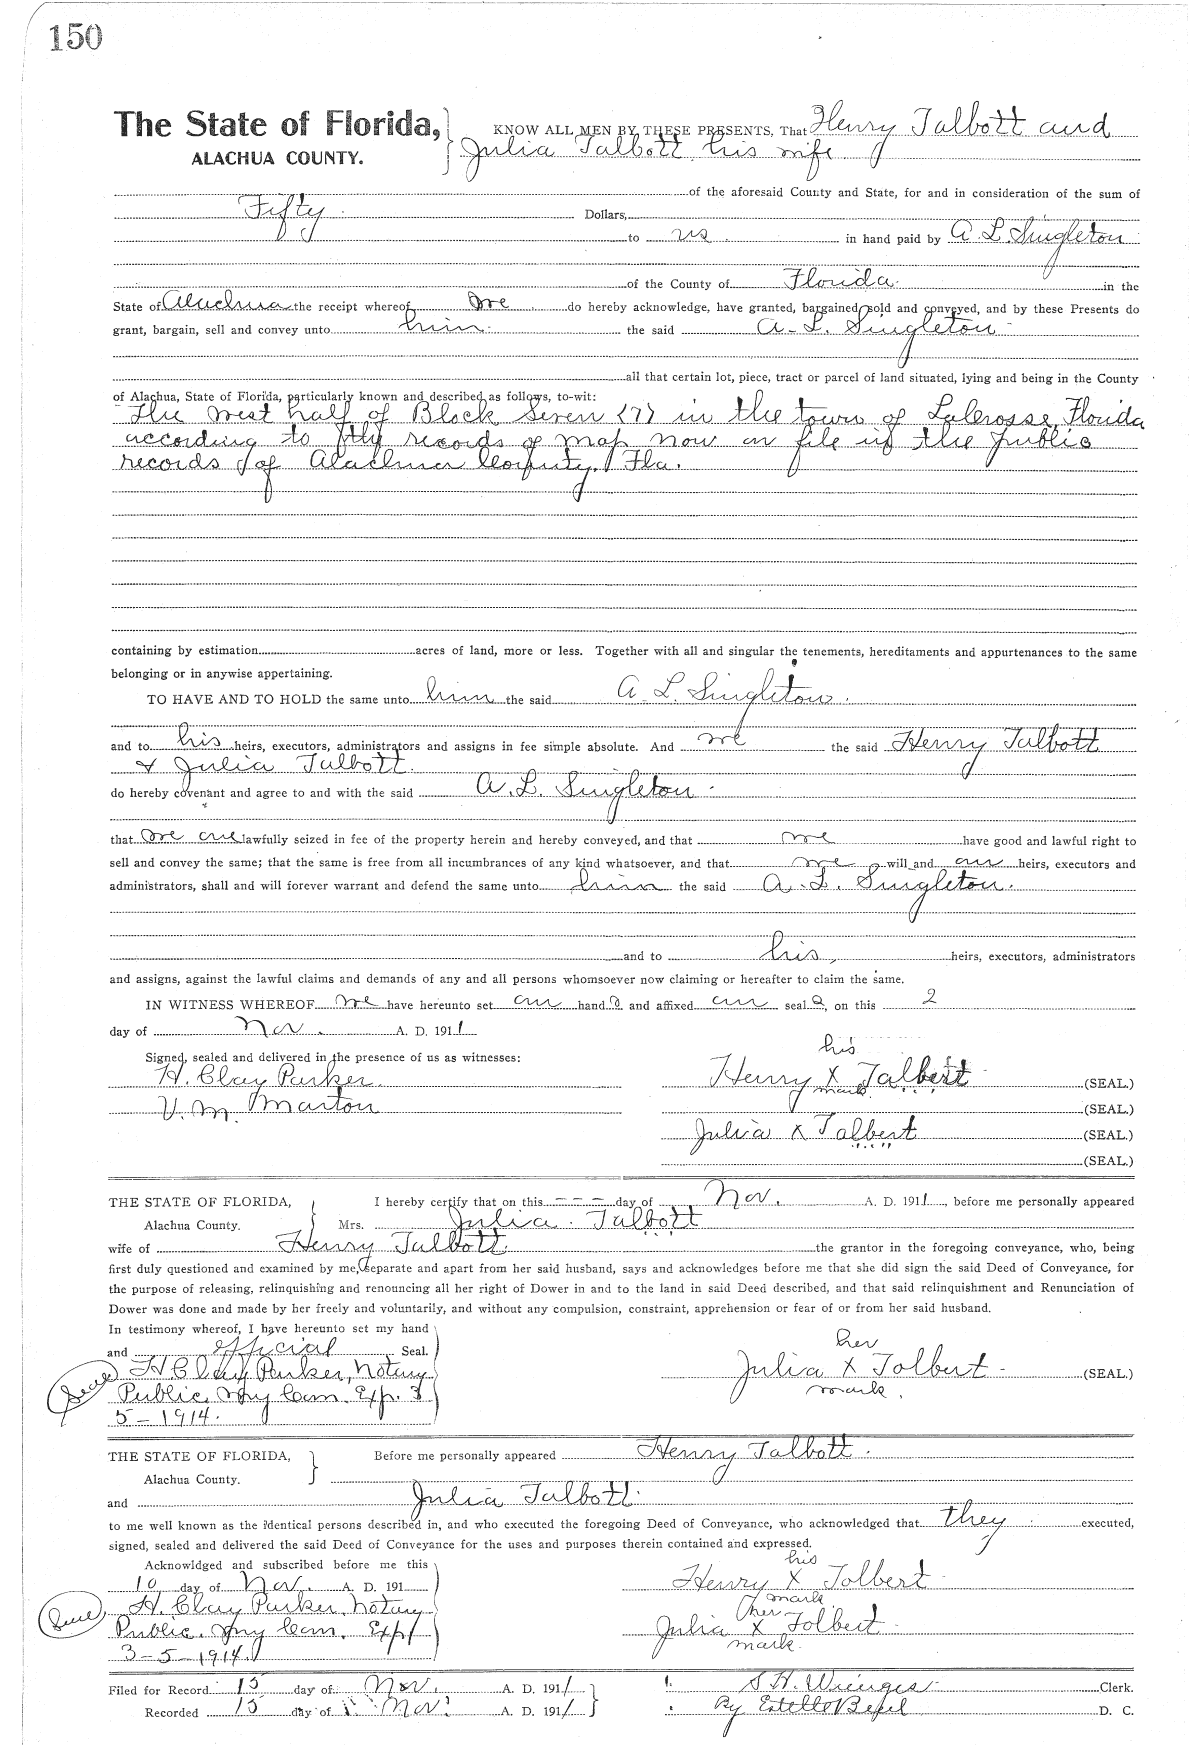 150
The State of Florida, KNOW ALL MEN BY THESE PRESENTS, That Henry Talbott and
ALACHUA COUNTY. Julia Talbott his wife
of the aforesaid County and State, for and in consideration of the sum of
Fifty Dollars,
to us in hand paid by A. L. Singleton
of the County of Florida in the
State of Alachua the receipt whereof we do hereby acknowledge, have granted, bargained, sold and conveyed, and by these Presents do
grant, bargain, sell and convey unto him the said A. L. Singleton
all that certain lot, piece, tract or parcel of land situated, lying and being in the County
of Alachua, State of Florida, particularly known and described as follows, to-wit:
The west half of Block Seven (7) in the town of LaCrosse, Florida
according to the records of map now on file in the public
records of Alachua County, Fla.
containing by estimation acres of land, more or less. Together with all and singular the tenements, hereditaments and appurtenances to the same
belonging or in anywise appertaining.
TO HAVE AND TO HOLD the same unto him the said A. L. Singleton.
and to his heirs, executors, administrators and assigns in fee simple absolute. And we the said Henry Talbott
& Julia Talbott.
do hereby covenant and agree to and with the said A. L. Singleton
that we are lawfully seized in fee of the property herein and hereby conveyed, and that we have good and lawful right to
sell and convey the same; that the same is free from all incumbrances of any kind whatsoever, and that we will and our heirs, executors and
administrators, shall and will forever warrant and defend the same unto him the said A. L. Singleton.
and to his, heirs, executors, administrators
and assigns, against the lawful claims and demands of any and all persons whomsoever now claiming or hereafter to claim the same.
IN WITNESS WHEREOF we have hereunto set our hands and affixed our seals, on this 2
day of Nov. A. D. 1911
Signed, sealed and delivered in the presence of us as witnesses:
his
H. Clay Parker. Henry X Talbert (SEAL.)
mark
V. M. Marton (SEAL.)
Julia X Talbert (SEAL.)
(SEAL.)
THE STATE OF FLORIDA, I hereby certify that on this - - - day of Nov. A. D. 1911, before me personally appeared
Alachua County. Mrs. Julia Talbott
wife of Henry Talbott the grantor in the foregoing conveyance, who, being
first duly questioned and examined by me, separate and apart from her said husband, says and acknowledges before me that she did sign the said Deed of Conveyance, for
the purpose of releasing, relinquishing and renouncing all her right of Dower in and to the land in said Deed described, and that said relinquishment and Renunciation of
Dower was done and made by her freely and voluntarily, and without any compulsion, constraint, apprehension or fear of or from her said husband.
In testimony whereof, I have hereunto set my hand
and official Seal.
her
(Seal) H. Clay Parker, Notary Julia X Tolbert (SEAL)
mark.
Public. My Com. Exp. 3
5-1914.
THE STATE OF FLORIDA, Before me personally appeared Henry Talbott.
Alachua County.
and Julia Talbott.
to me well known as the identical persons described in, and who executed the foregoing Deed of Conveyance, who acknowledged that they executed,
signed, sealed and delivered the said Deed of Conveyance for the uses and purposes therein contained and expressed.
Acknowldged and subscribed before me this
his
10 day of Nov. A. D. 191 Henry X Tolbert
mark
(Seal) H. Clay Parker, Notary
her
Public. My Com. Exp Julia X Tolbert
mark.
3-5-1914.
Filed for Record 15 day of Nov. A. D. 1911 S. H. Wienges Clerk.
Recorded 15 day of Nov. A. D. 1911 By Estelle D. C.